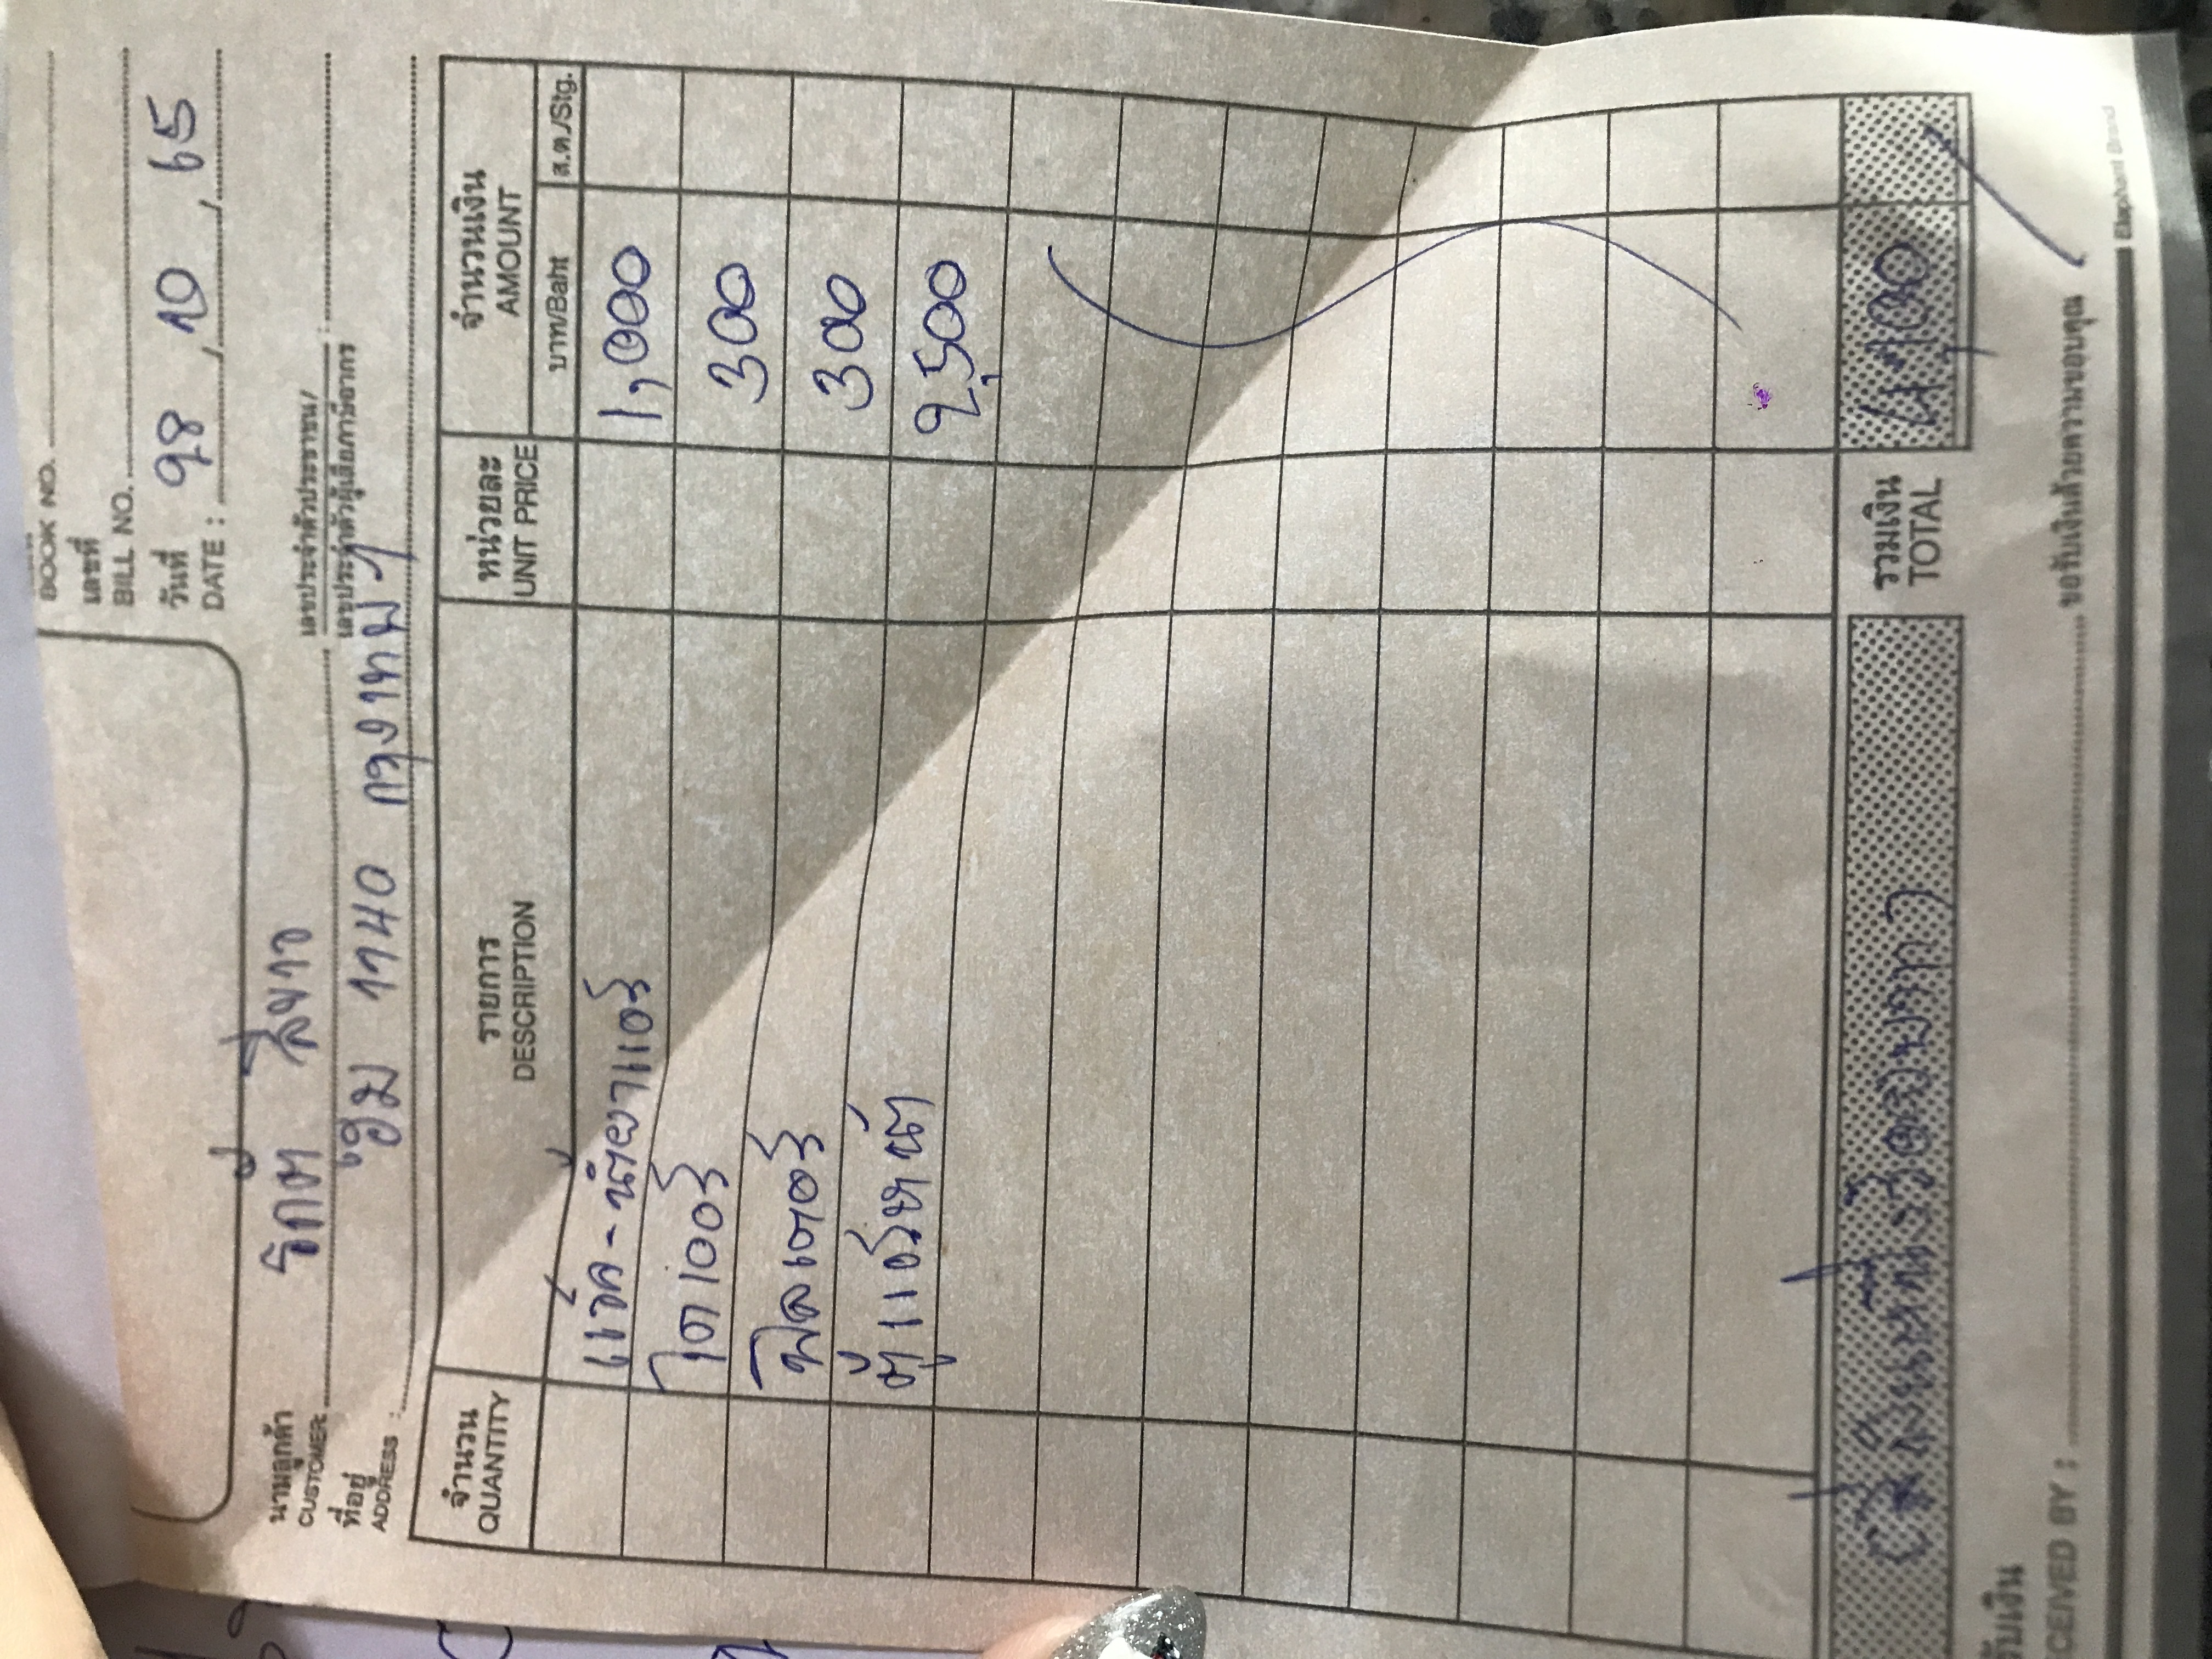 BOOK NO.
เลขที่
BILL NO.
วันที่ 28 / 10 / 65
DATE :
นามลูกค้า รีกัต สีขาว
CUSTOMER:
เลขประจำตัวประชาชน/
เลขประจำตัวผู้เสียภาษีอากร :
ที่อยู่ 1740 กรุงเทพฯ
ADDRESS :
จำนวน รายการ หน่วยละ จำนวนเงิน
QUANTITY DESCRIPTION UNIT PRICE AMOUNT
บาท/Baht ส.ต./Stg.
- น้ำยาแอร์ 1,000
ไดเออร์ 300
ฟิลเตอร์ 300
ตู้แอร์หน้า 2,500
(สี่พันหนึ่งร้อยบาท) รวมเงิน 4,100
TOTAL
รับเงิน
CEIVED BY : ขอรับเงินด้วยความขอบคุณ
Elephant Brand